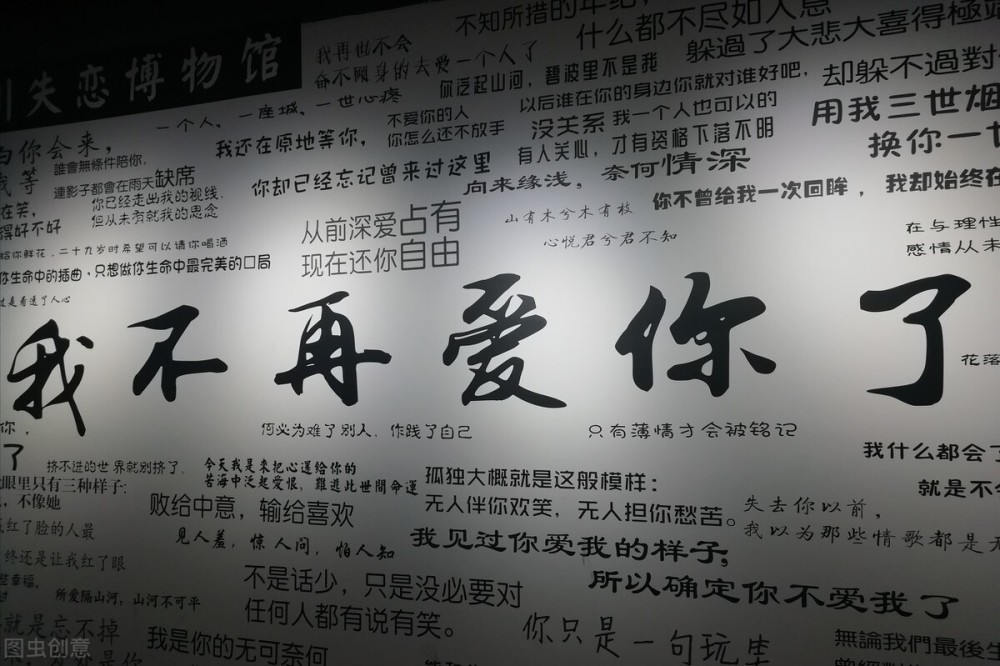 失恋博物馆
我再也不会
奋不顾身的去爱一个人了
不知所措的年纪
什么都不尽如人意
躲過了大悲大喜得極
却躲不過對
一个人,一座城,一世心疼
你泛起山河,碧波里不是我
以后谁在你的身边你就对谁好吧,
用我三世烟
换你一世
不爱你的人
你怎么还不放手
没关系 我一个人也可以的
有人关心,才有资格下落不明
我还在原地等你,
你却已经忘记曾来过这里
向来缘浅,奈何情深
你不曾给我一次回眸,我却始终在
你会来,
我等
誰會無條件陪你,
連影子都會在雨天缺席
你已经走出我的视线,
但从未有就我的思念
在笑,
得好不好
给你鲜花,二十九岁时希望可以请你喝酒
你生命中的插曲,只想做你生命中最完美的口局
过是看透了人心
从前深爱占有
现在还你自由
山有木兮木有枝
心悦君兮君不知
在与理性
感情从未
我不再爱你了
花落
你,
了
何必为难了别人,作践了自己
只有薄情才会被铭记
我什么都会了
就是不
挤不进的世界就别挤了。
今天我是来把心还给你的
苦海中泛起爱恨,难逃此世間命运
孤独大概就是这般模样:
无人伴你欢笑,无人担你愁苦。
眼里只有三种样子:
不像她
红了脸的人最
终还是让我红了眼
败给中意,输给喜欢
見人羞,惊人问,怕人知
我见过你爱我的样子,
所以确定你不爱我了
失去你以前,
我以为那些情歌都是无
幸福,
所爱隔山河,山河不可平
就是忘不掉
不是话少,只是没必要对
任何人都有说有笑。
我是你的无可奈何
你只是一句玩笑
無論我們最後生
图虫创意